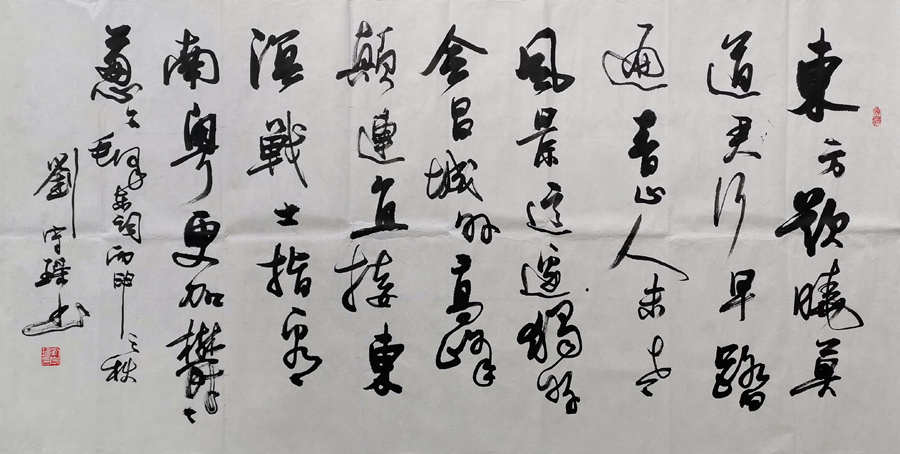 東方欲曉莫
道君行早踏
遍青山人未老
風景這邊獨好
会昌城外高峰
顛連直接東
溟戰士指看
南粤更加鬱々
蔥々 毛泽东詞丙申之秋
劉守书